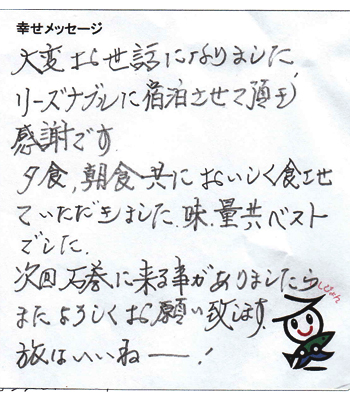 幸せメッセージ
大変お世話になりました。
リーズナブルに宿泊させて頂き
感謝です。
夕食、朝食共においしく食させ
ていただきました。味、量共ベスト
でした。
次回石巻に来る事がありましたら
またよろしくお願い致します。
旅はいいねー！